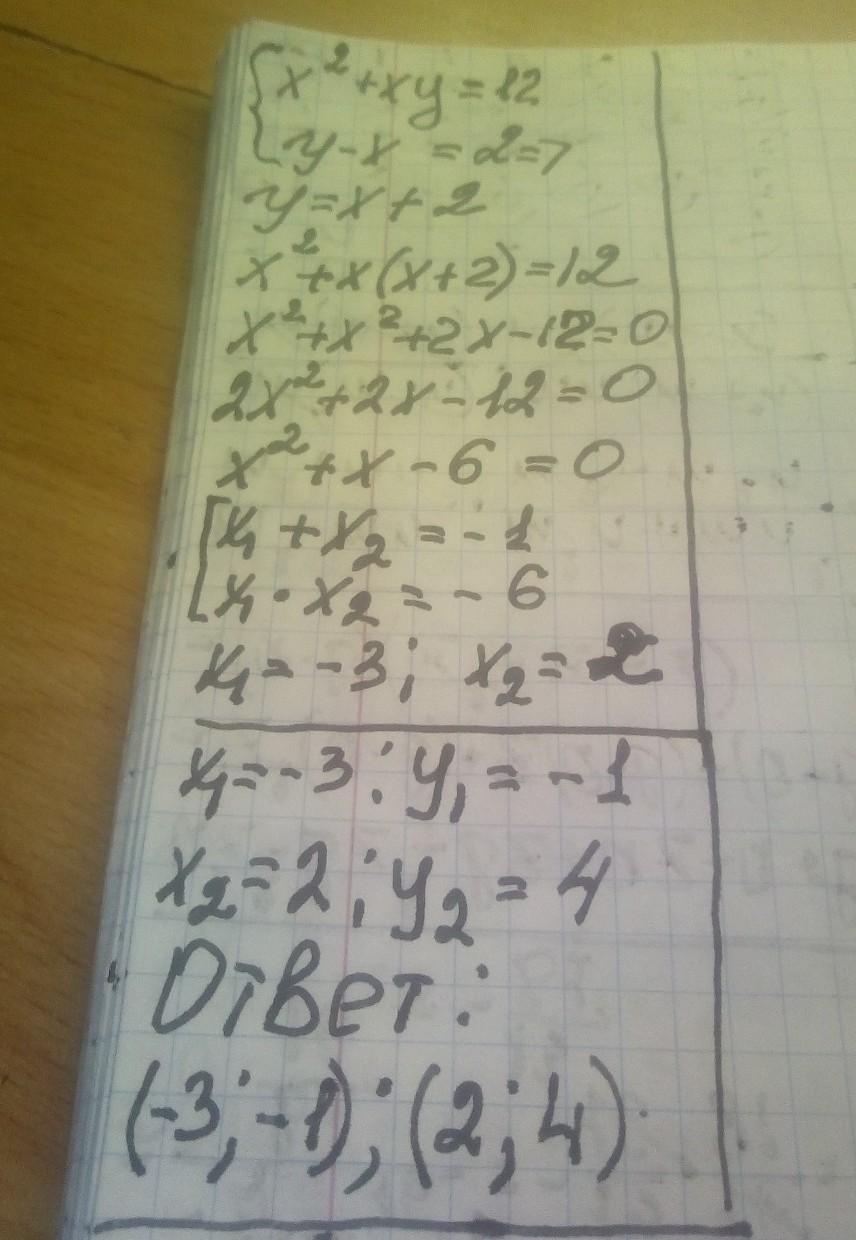 {x²+xy=12
{y-x=2=>
y=x+2
x²+x(x+2)=12
x²+x²+2x-12=0
2x²+2x-12=0
x²+x-6=0
[x₁+x₂=-1
[x₁·x₂=-6
x₁=-3; x₂=2
x₁=-3; y₁=-1
x₂=2; y₂=4
Ответ:
(-3;-1); (2;4)